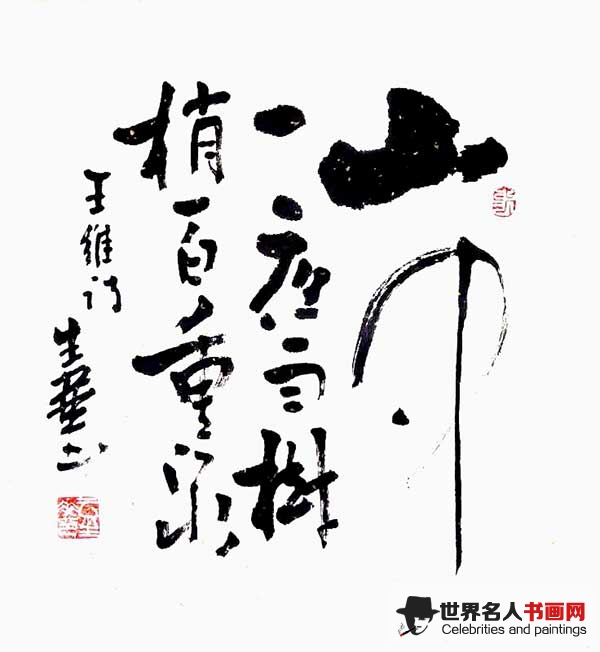 山中
一夜雨樹
梢百重泉
王維詩
生華书
世界名人书画网
Celebrities and paintings